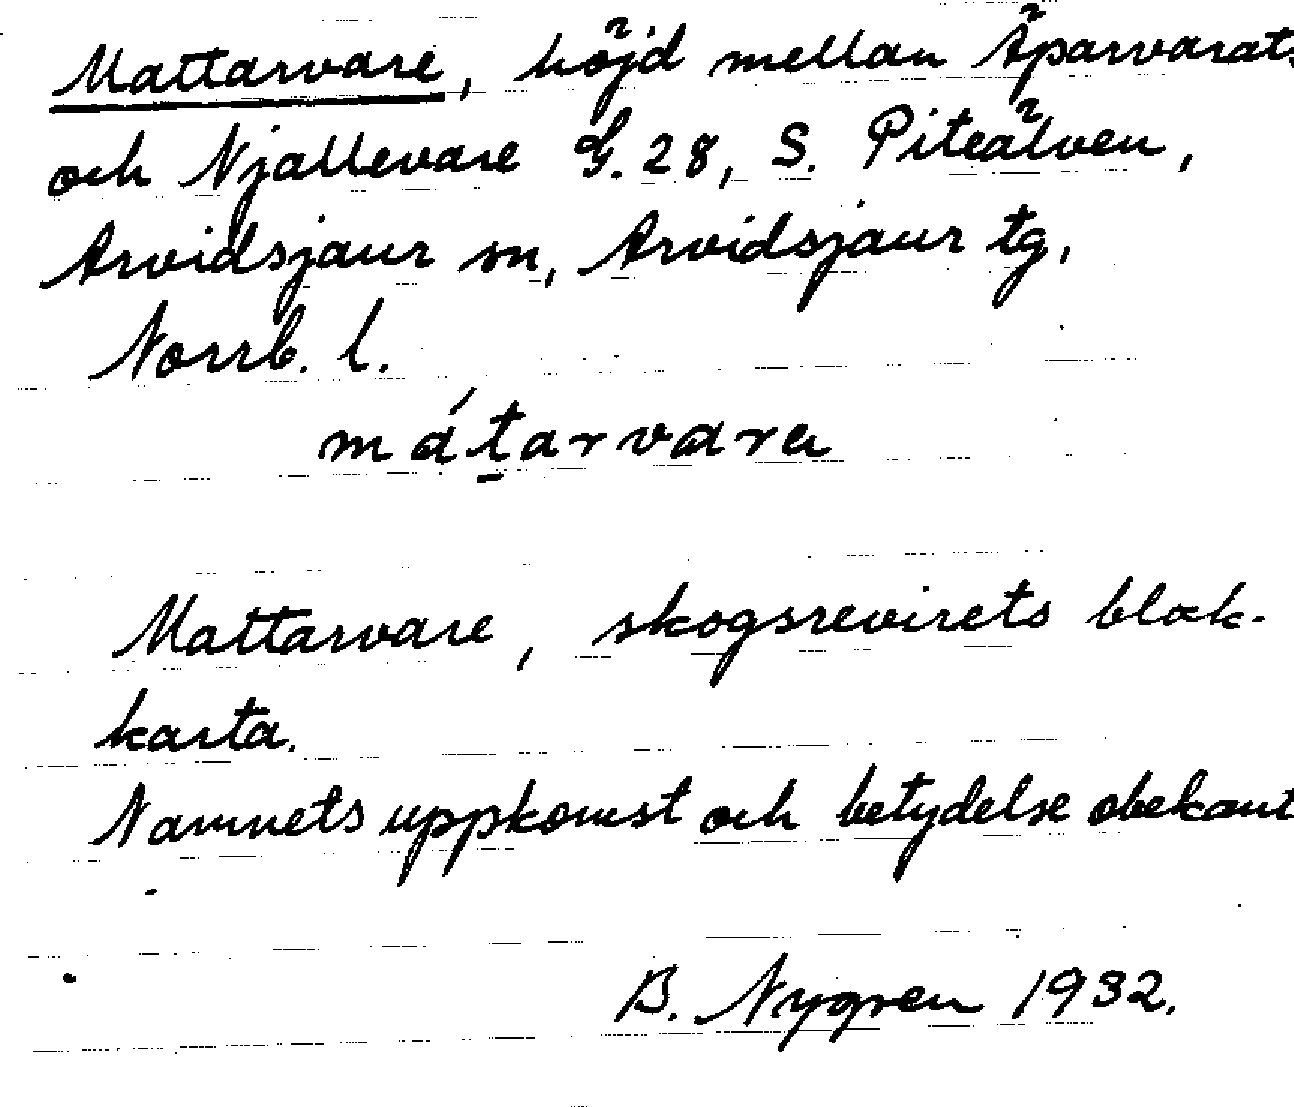 Mattarvare, höjd mellan Äparvarats
och Njallevare G. 28, S. Piteälven,
Arvidsjaur sn, Arvidsjaur tg,
Norrb. l.
mát̲arvarɐ
Mattarvare, skogsrevirets block-
karta.
Namnets uppkomst och betydelse obekant
B. Nygren 1932.